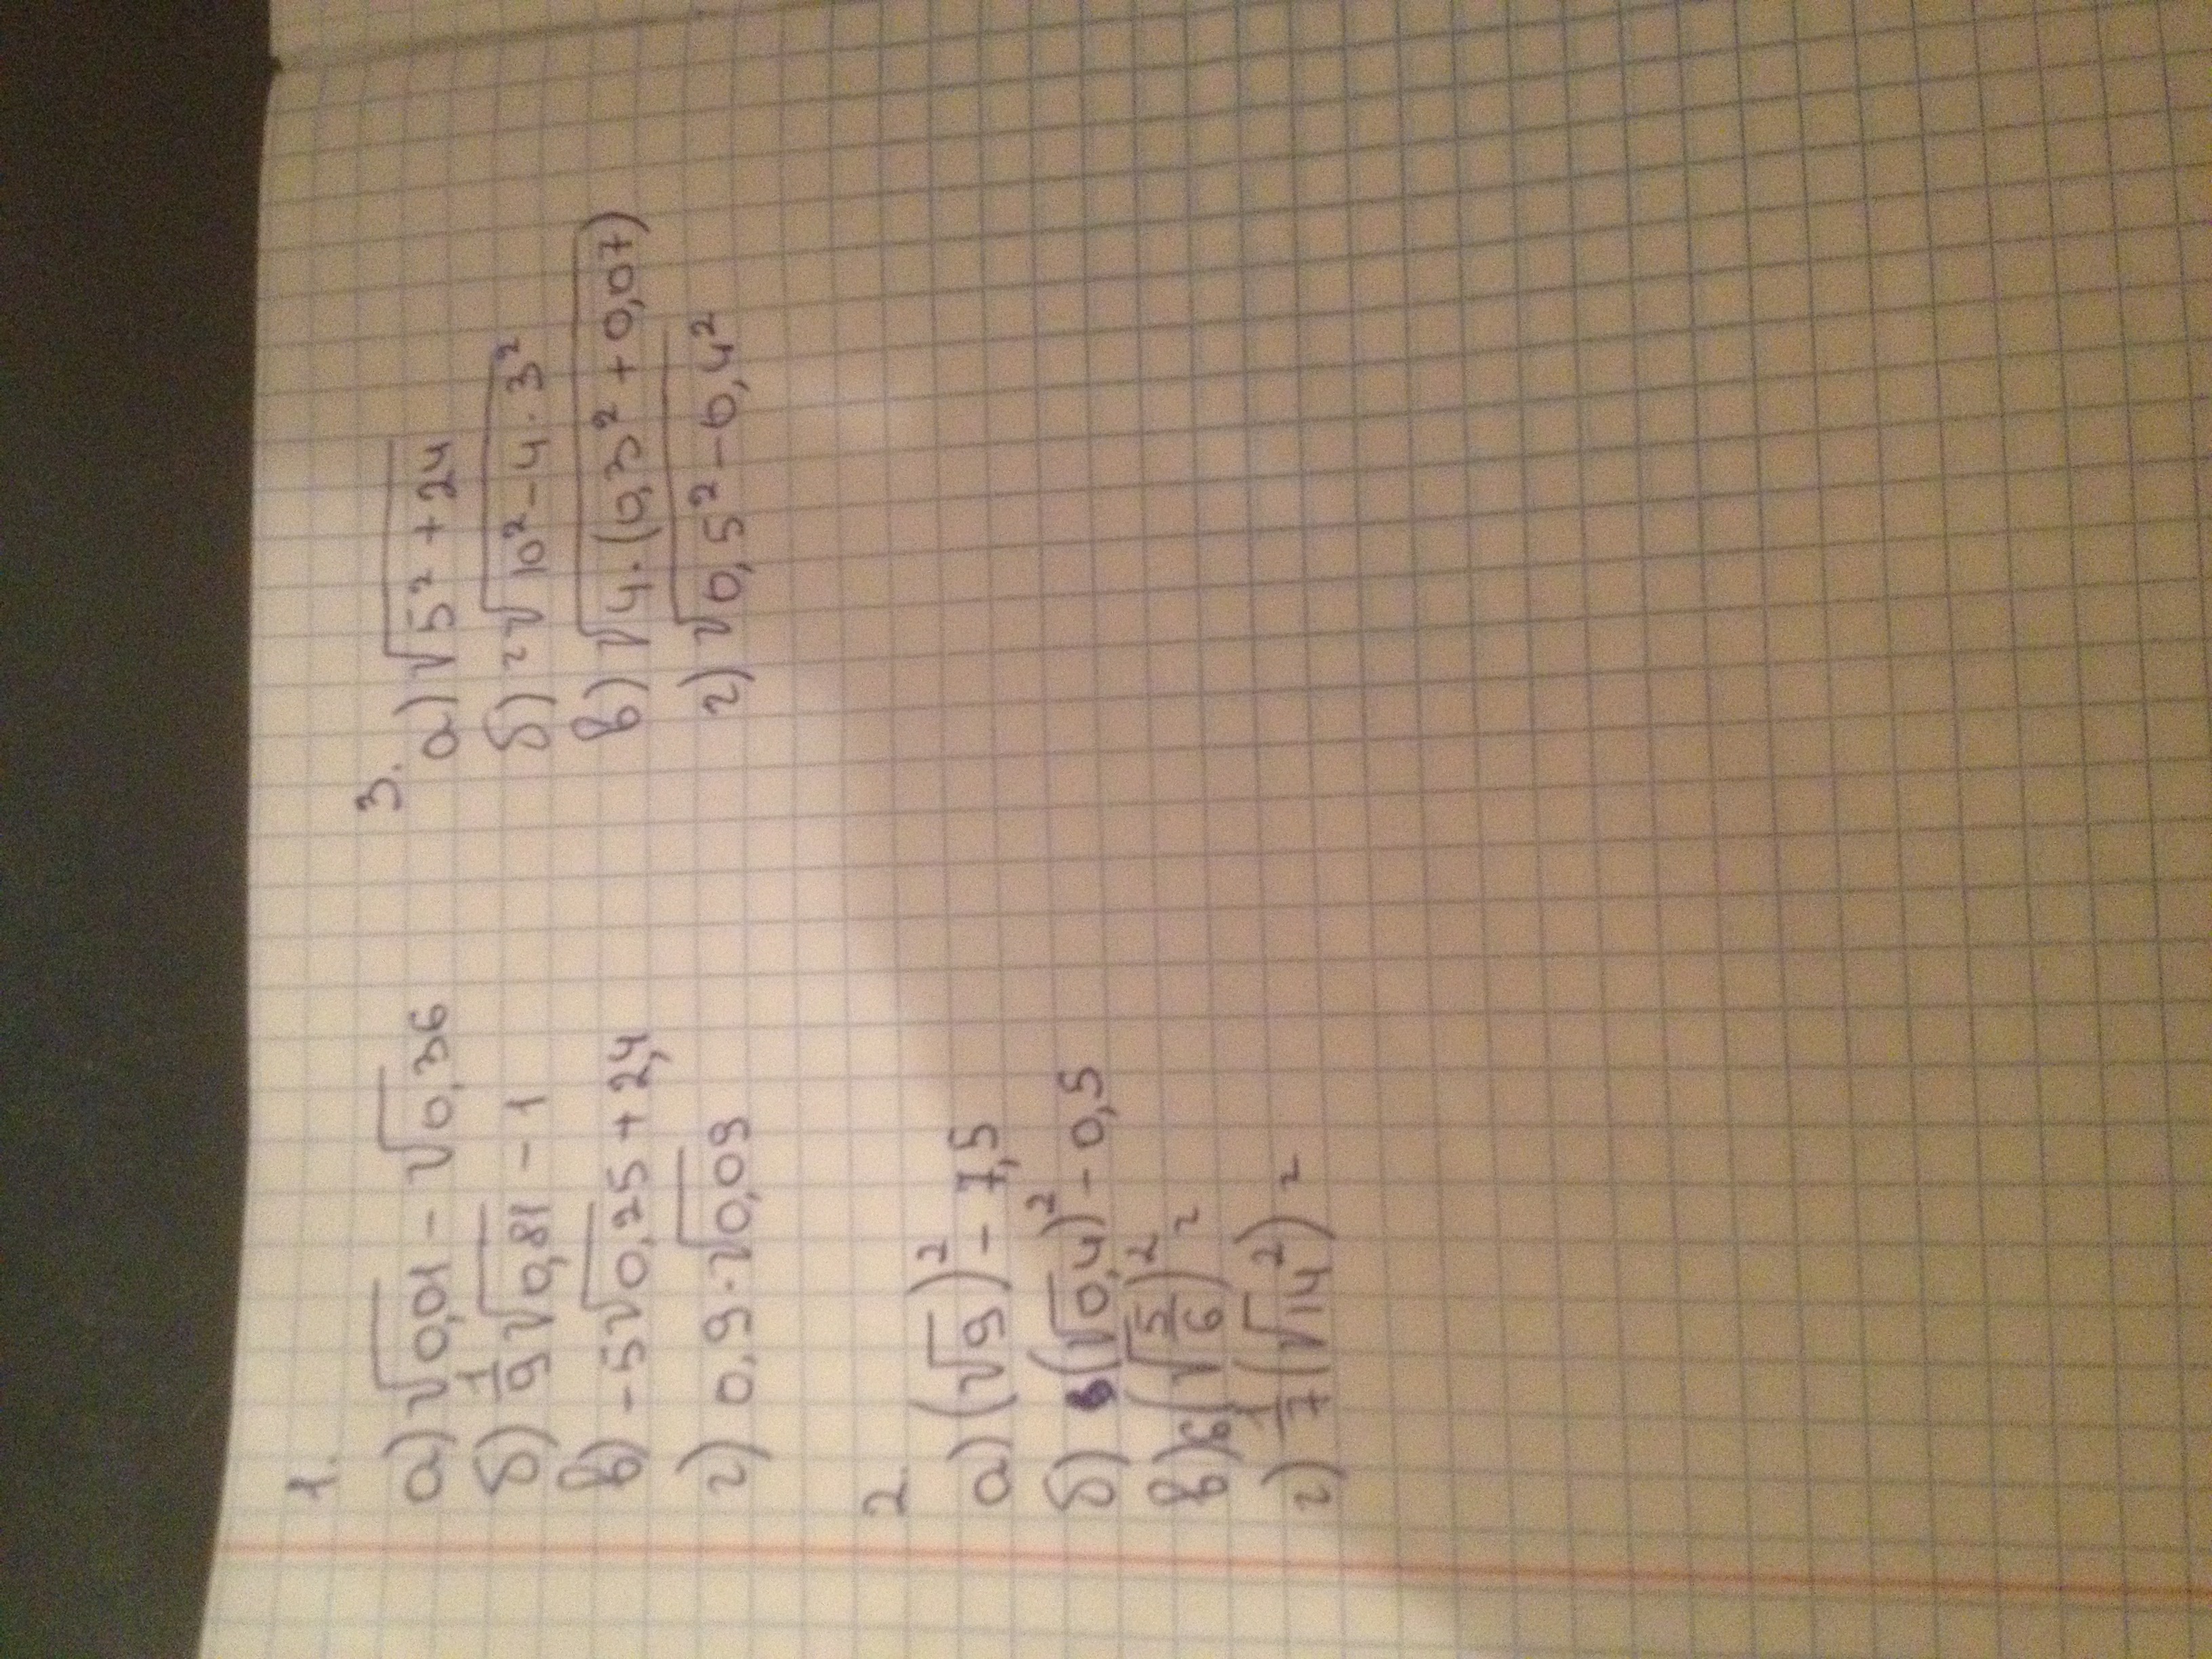 1.
а) √0,01 - √0,36
б) 1/9 √0,81 - 1
в) -5√0,25 + 2,4
г) 0,9 · √0,09
2.
а) (√9)² - 7,5
б) (√0,4)² - 0,5
в) 6(√5/6)² ²
г) 1/7 (√14²)²
3.
а) √5² + 24
б) 2√10² - 4 · 3²
в) √4 · (0,3² + 0,07)
г) √0,5² - 0,4²